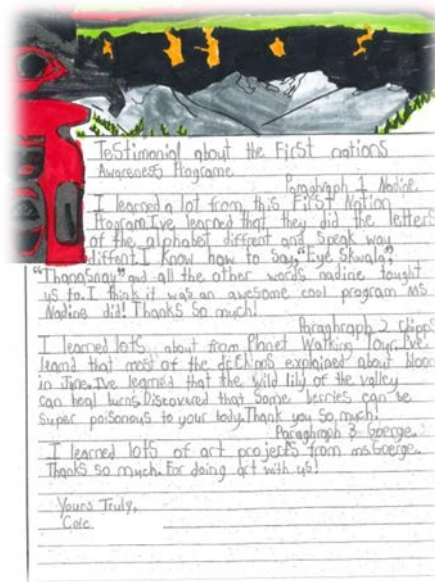 Testimonial about the First nations
Awareness Programe
Paraghraph 1 Nadine
I learned a lot from this First Nation
Program. I've learned that they did the letters
of the alphabet diffrent and speak way
diffrent. I know how to say, "Eye Skwala,"
"Thanasnay" and all the other words nadine tought
us to. I think it was an awesome cool program Ms
Nadine did! Thanks so much!
Paraghraph 2 Chipps
I learned lots about from Planet Walking Tour. I've
learnd that most of the explained about bloom
in June. I've learned that the wild lily of the valley
can heal burns. Discovered that some berries can be
super poisonous to your body. Thank you so much!
Paraghraph 3 Goerge.
I learned lots of art projects from ms. Goerge.
Thanks so much. For doing art with us!
Yours Truly,
Cole